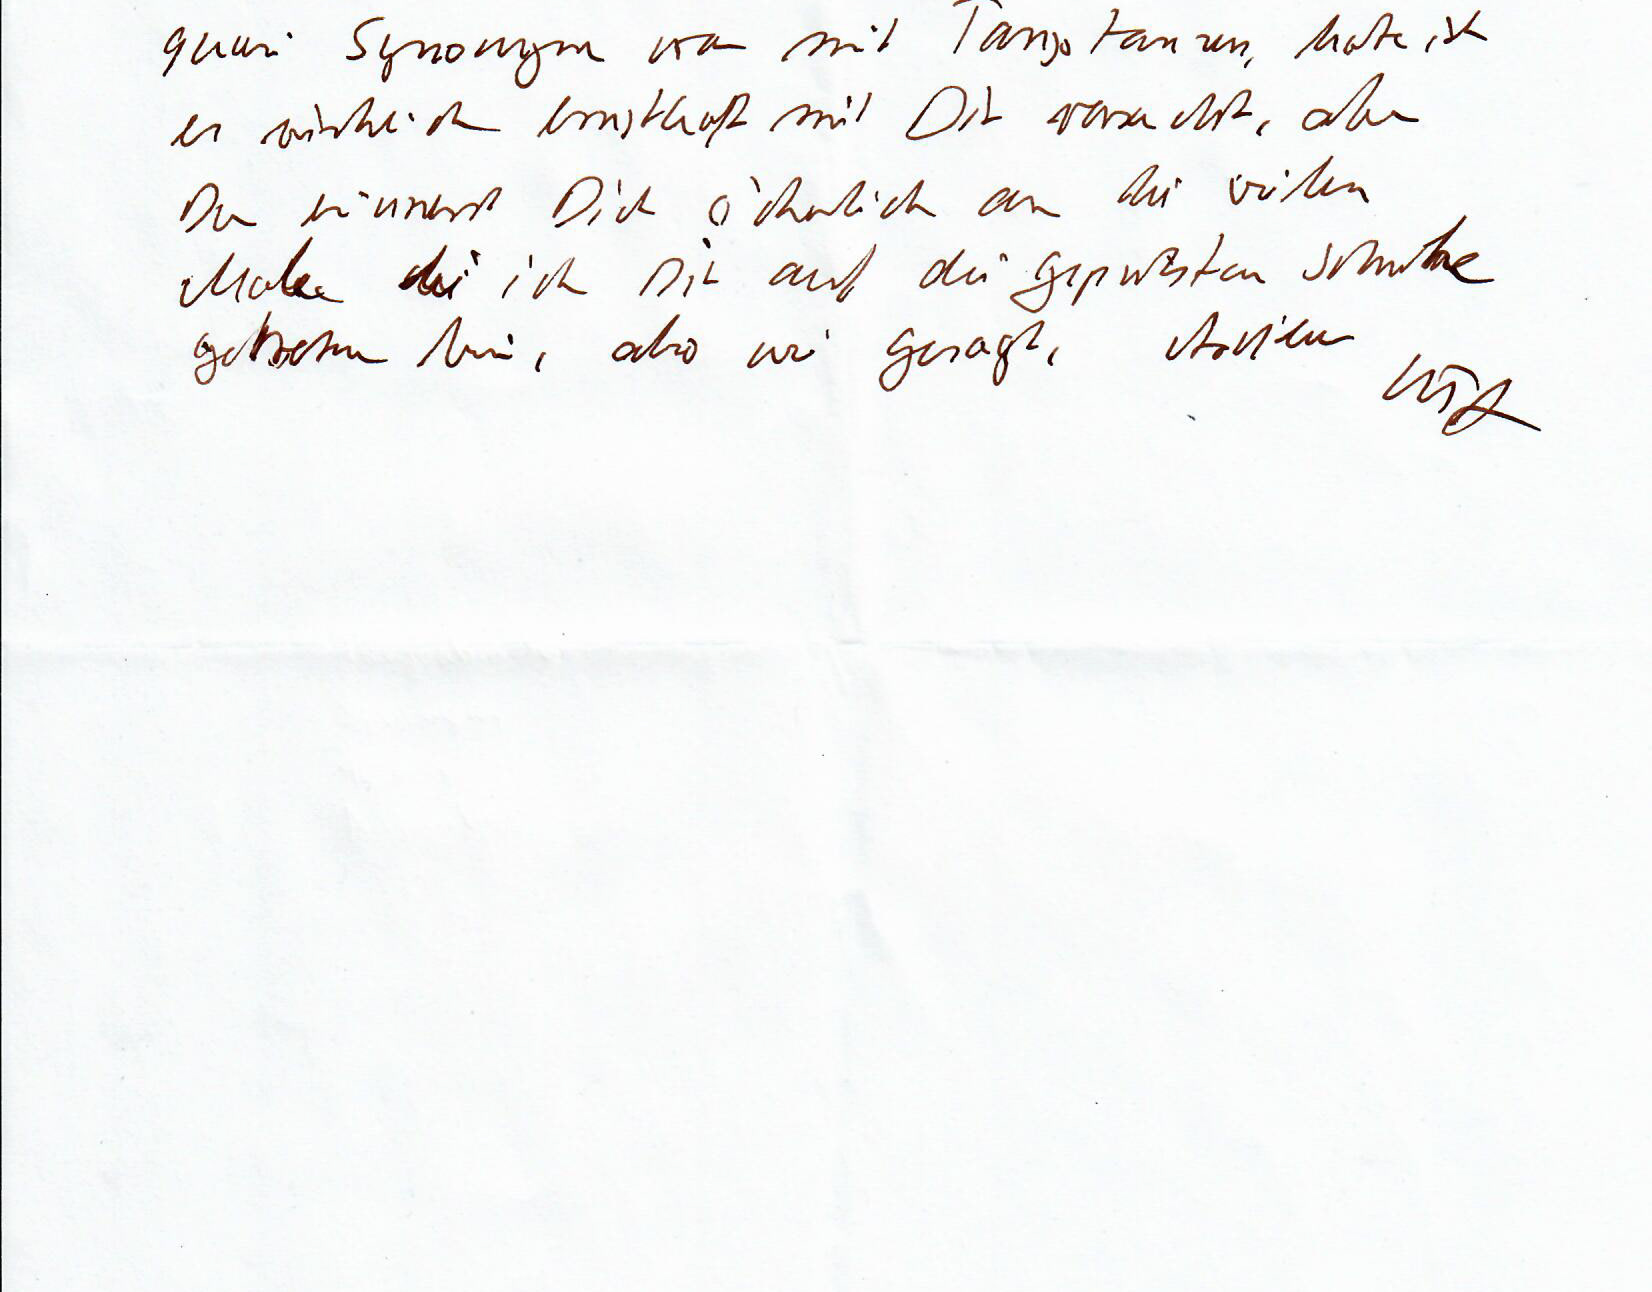 quasi Synonym war mit Tango tanzen, hatte ich
es wirklich ernsthaft mit Dir versucht, aber
Du erinnerst Dich sicherlich an die vielen
Male die ich Dir auf die geputzten Schuhe
getreten bin, also wie gesagt,